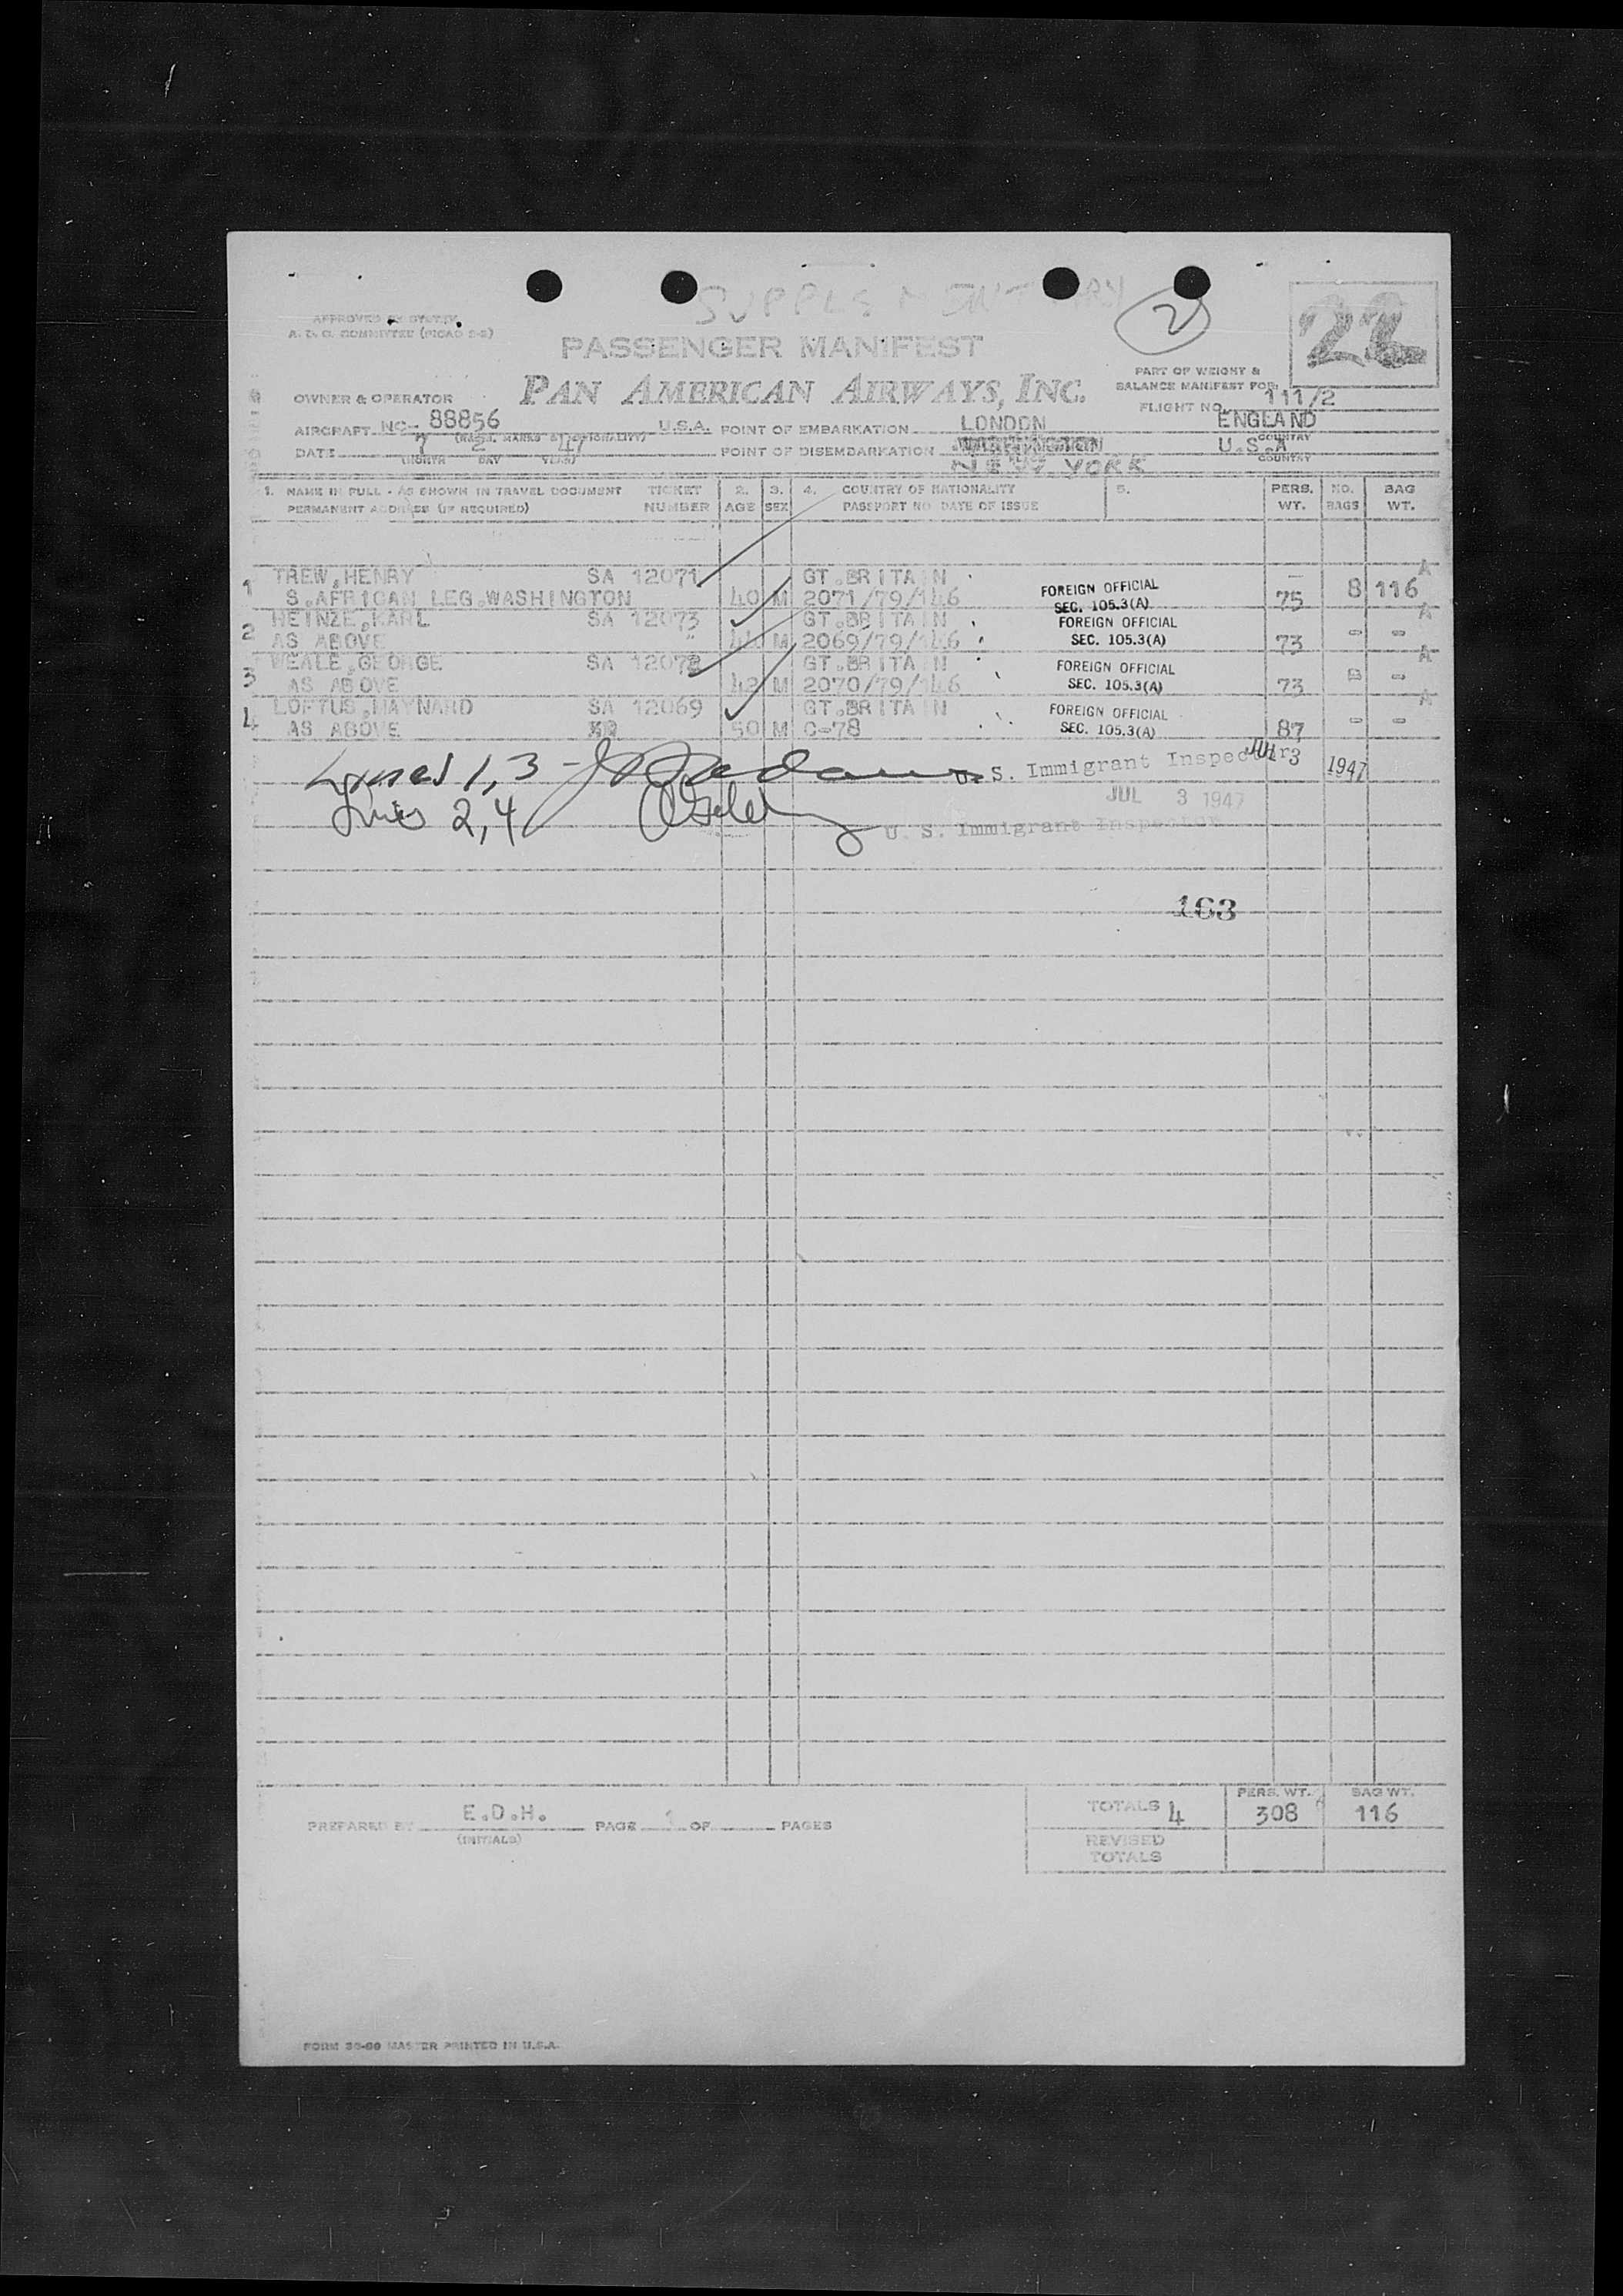 SUPPLEMENTARY
2
22
A. D. C. COMMITTEE
PASSENGER MANIFEST
PART OF WEIGHT &
BALANCE MANIFEST FOR
OWNER & OPERATOR PAN AMERICAN AIRWAYS, INC.
FLIGHT NO. 111/2
AIRCRAFT NC- 88856 U.S.A. POINT OF EMBARKATION LONDON ENGLAND
COUNTRY
DATE 7 2 47 POINT OF DISEMBARKATION WASHINGTON U.S.A
(MONTH DAY YEAR) NEW YORK COUNTRY
1. NAME IN FULL - AS SHOWN IN TRAVEL DOCUMENT TICKET 2. 3. 4. COUNTRY OF NATIONALITY 5. PERS. NO. BAG
PERMANENT ADDRESS (IF REQUIRED) NUMBER AGE SEX PASSPORT NO. DATE OF ISSUE WT. BAGS WT.
1 TREW,HENRY SA 12071 GT.BRITAIN FOREIGN OFFICIAL A
S.AFRICAN LEG.WASHINGTON 40 M 2071/79/146 SEC. 105.3(A) 75 8 116
2 HEINZE,KARL SA 12073 GT.BRITAIN FOREIGN OFFICIAL A
AS ABOVE M 2069/79/146 SEC. 105.3(A) 73 - -
3 WEALE,GEORGE SA 12072 GT.BRITAIN FOREIGN OFFICIAL A
AS ABOVE 42 M 2070/79/146 SEC. 105.3(A) 73 -
4 LOFTUS,MAYNARD SA 12069 GT.BRITAIN FOREIGN OFFICIAL A
AS ABOVE 50 M C-78 SEC. 105.3(A) 87 - -
Lines 1,3 - U. S. Immigrant Inspector JUL 3 1947
JUL 3 1947
Lines 2,4 U. S. Immigrant Inspector
163
PREPARED BY E.D.H. PAGE 1 OF PAGES
(INITIALS)
PERS. WT. BAG WT.
TOTALS 4 308 116
REVISED
TOTALS
FORM 30-60 MASTER PRINTED IN U.S.A.